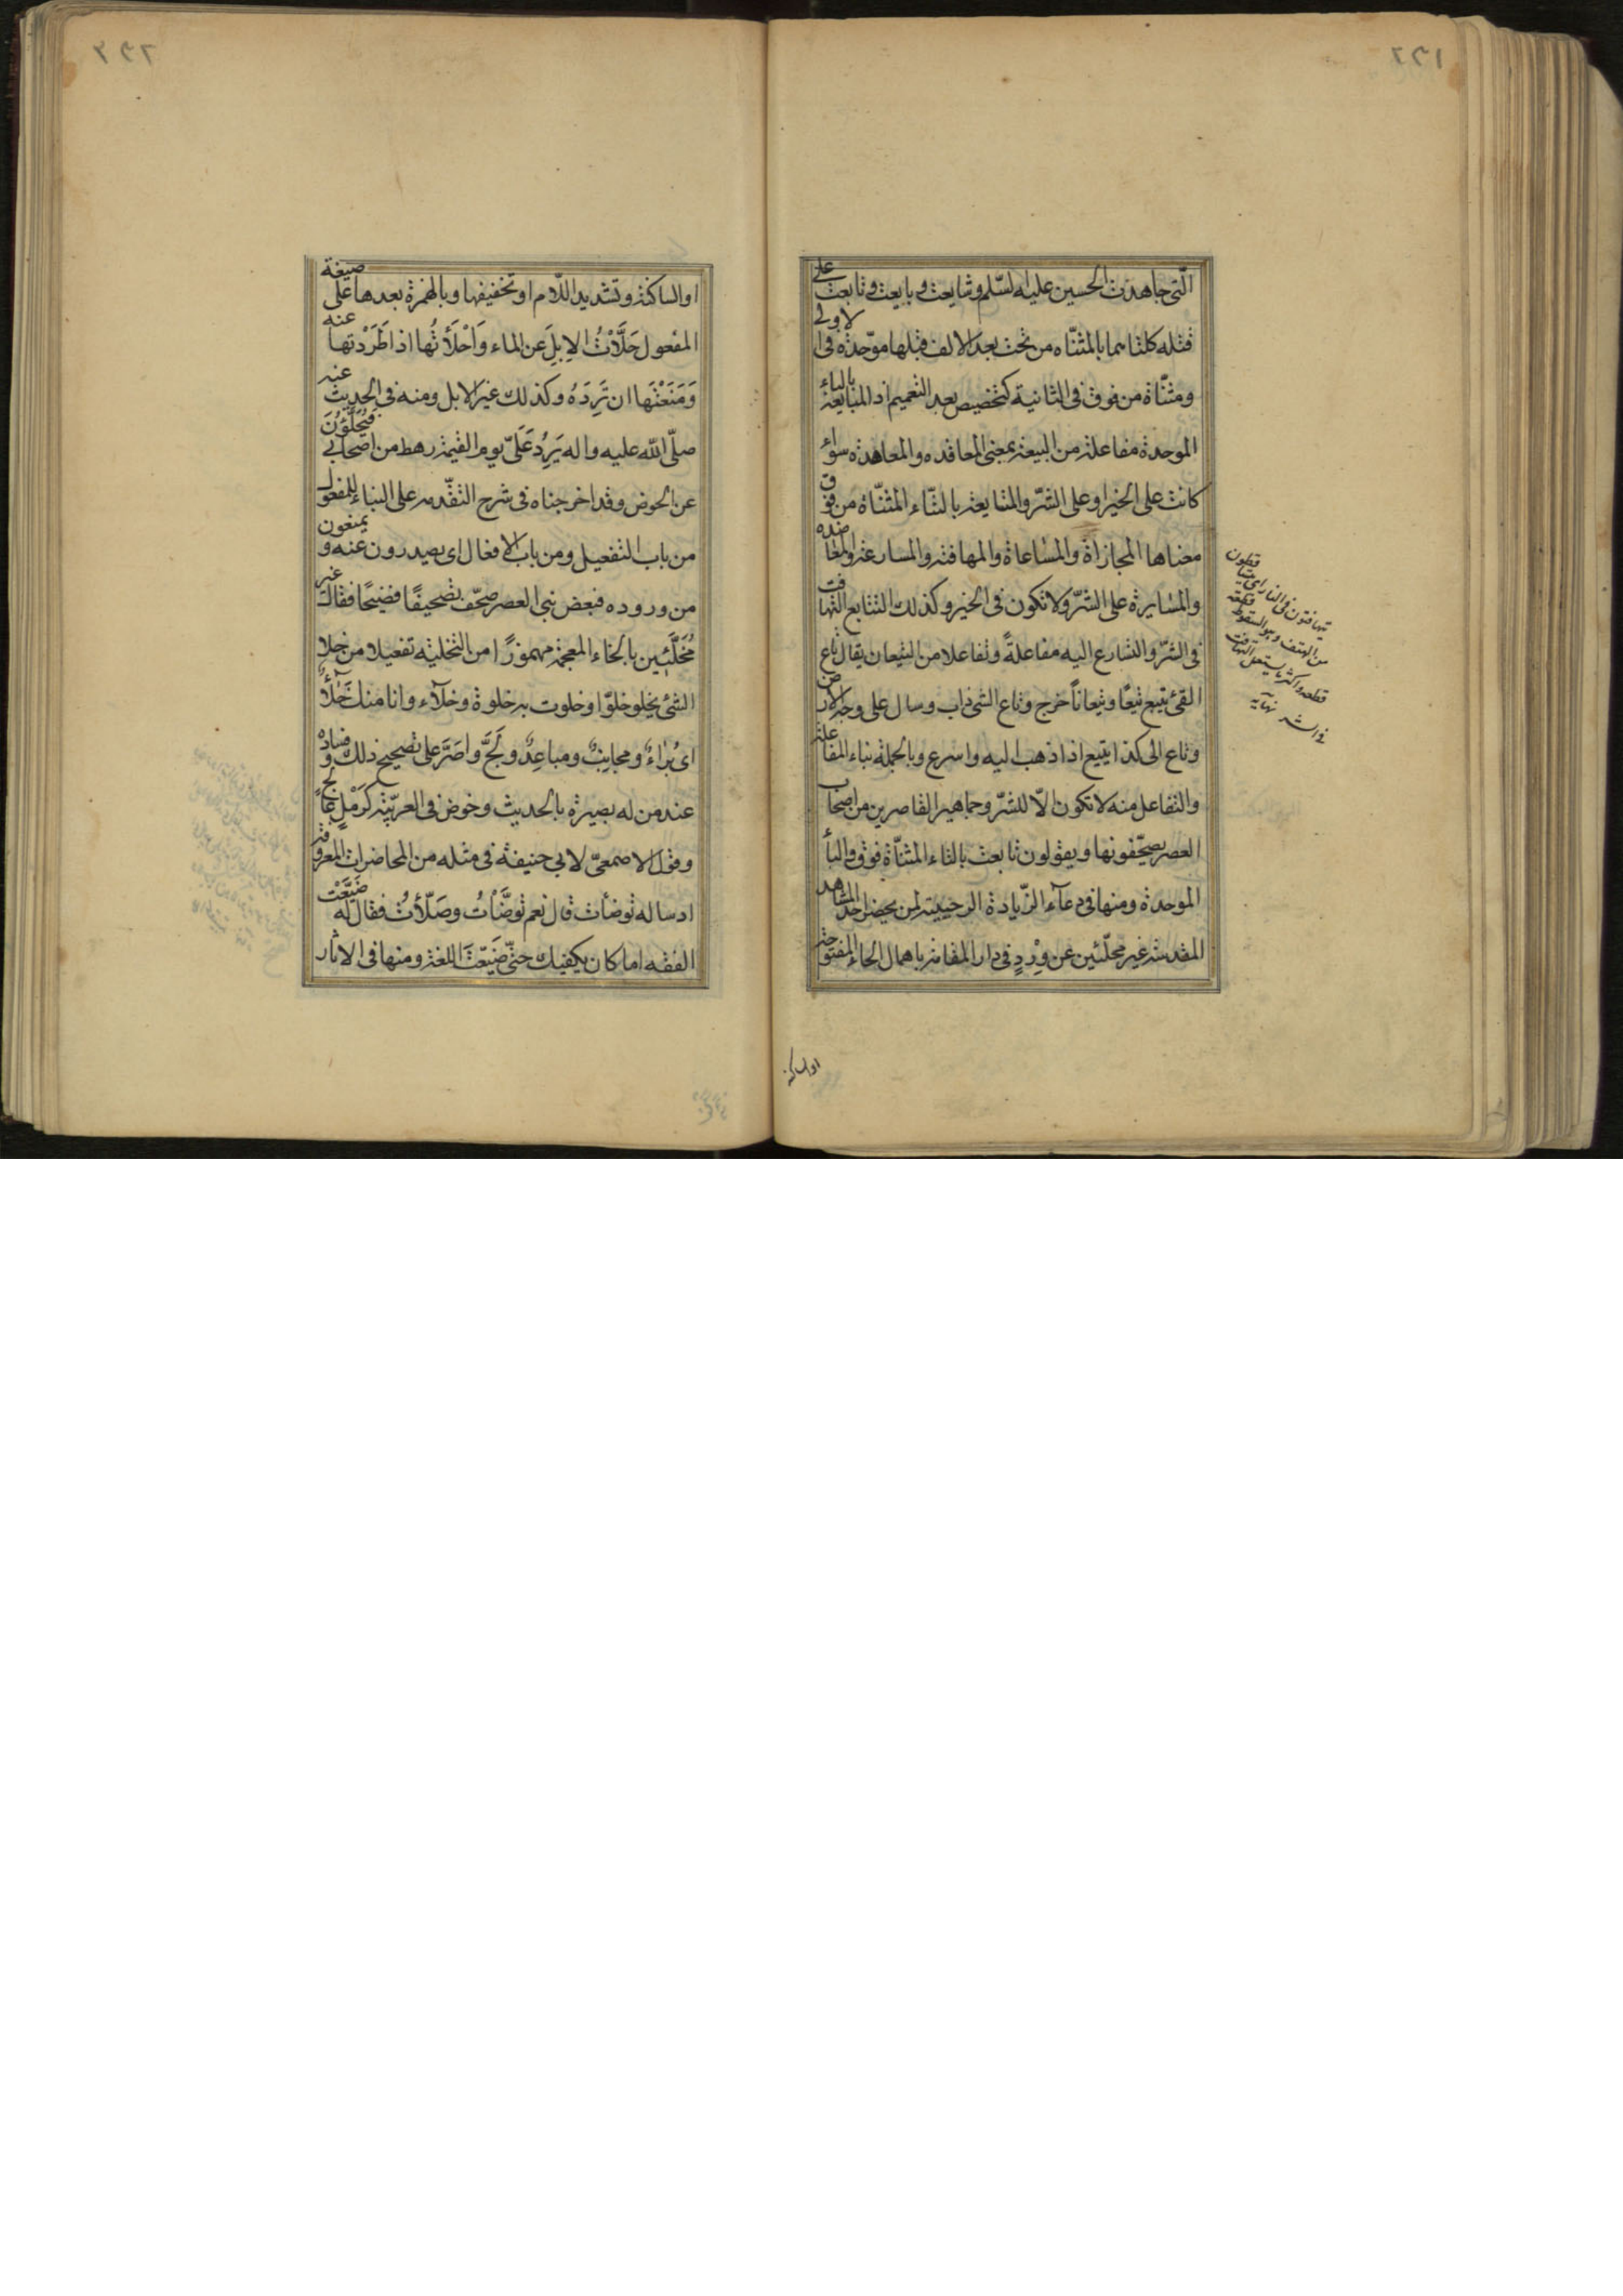 التي جاهدت الحسين عليه السلم وشايعت وبايعت وتابعت على
قتله كلتاهما بالمثناه من تحت بعد الالف قبلها موحدة في الاولى
ومثناة من فوق في الثانية كتخصيص بعد التعميم اذ المبايعة بالباء
الموحدة مفاعلة من البيعة بمعنى المعاقده والمعاهده سواء
كانت على الخير او على الشر والمتايعة بالتاء المثناة من فوق
معناها المجازاة والمساعاة والمهافتة والمسارعة والمعاضده
والمسايرة على الشر ولا تكون في الخير وكذلك التتايع التهافت
في الشر والتسارع اليه مفاعلة وتفاعلا من التيعان يقال تاع
القئ يتيع تيعا وتيعانا خرج وتاع الشئ ذاب وسال على وجه الارض
وتاع الى كذا يتيع اذا ذهب اليه واسرع وبالجملة بناء المفاعلة
والتفاعل منه لا تكون الا للشر وجماهير القاصرين من اصحاب
العصر يصحفونها ويقولون تابعت بالتاء المثناة فوق والباء
الموحدة ومنها في دعاء الزيادة الرجبية لمن يحضر احد المشاهد
المقدسة غير محلئين عن ورد في دار المقامة باهمال الحاء المفتوحة
يتهافتون في النار اي يتساقطون
من الهفت وهو السقوط قطعة
قطعه واكثر ما يستعمل التهافت
في الشر نهايه
او الساكنة
او الساكنة وتشديد اللام او تخفيفها وبالهمزة بعدها على صيغة
المفعول حَلَّأْتُ الاِبِلَ عن الماء وَاَحْلَأتُها اذا طَرَدْتها عنه
وَمَنَعْتَها ان تَرِدَهُ وكذلك غير الابل ومنه في الحديث عنه
صلّى الله عليه واله يَرِدُ عَلَىّ يوم القيمة رهط من اصحابي فَيُحَلَّؤُنَ
عن الحوض وقد اخرجناه في شرح التقدمه على البناء للمفعول
من باب التفعيل ومن باب الافعال اى يصدرون عنه ويمنعون
من وروده فبعض بني العصر صحّف تصحيفًا فضيحًا فقال غير
مُخَلَّئِين بالخاء المعجمة مهموزًا من التخلية تفعيلا من خلا
الشئ يخلو خلوّا وخلوت به خلوة وخلاء وانا منك خَلَآءٌ
اى بُرَاءٌ ومجانِبٌ ومباعِدٌ ولَجَّ واصَرَّ على تصحيح ذلك وفساده
عند من له بصيرة بالحديث وخوض في العربية كرَمْلِ عالج
وقول الاصمعىّ لابي حنيفة في مثله من المحاضرات المعروفة
اد ساله توضأت قال نعم توضَّأتُ وصَلّأتُ فقال له ضَيَّعْت
الفقه اما كان يكفيك حتّى ضَيّعْتَ اللغة ومنها في الاثار